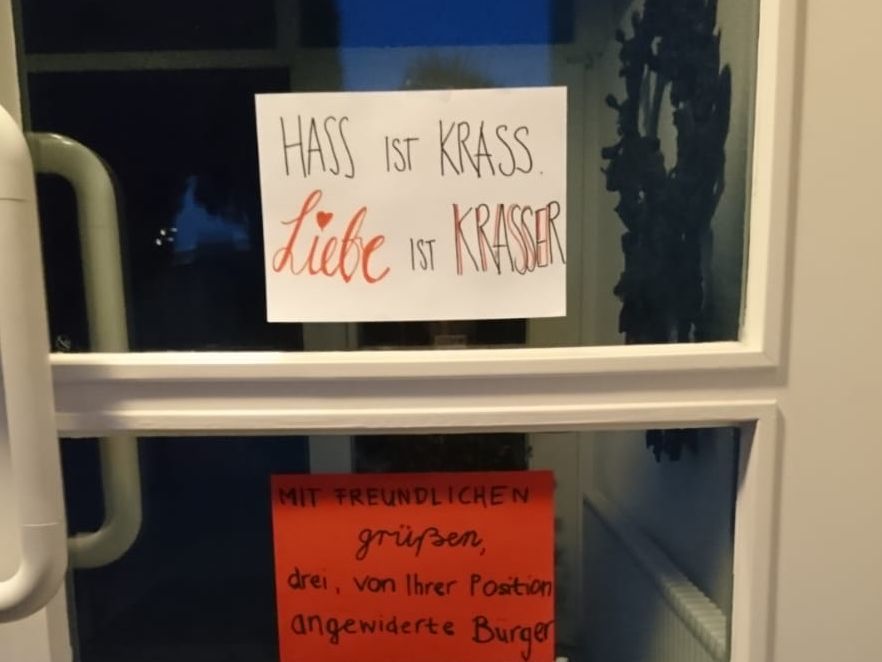 HASS IST KRASS.
Liebe IST KRASSER
MIT FREUNDLICHEN
grüßen,
drei, von Ihrer Position
angewiderte Bürger